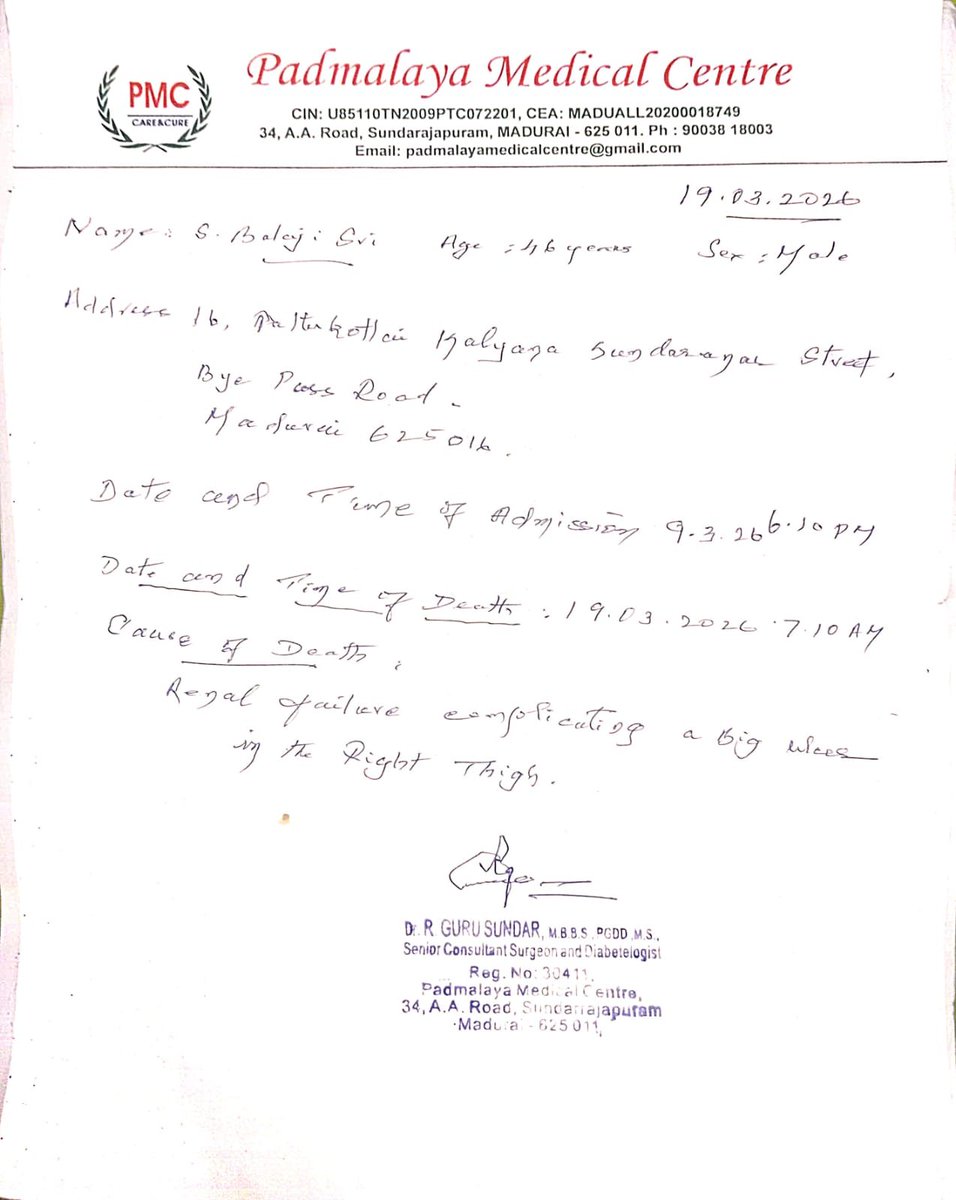 PMC
CARE&CURE
Padmalaya Medical Centre
CIN: U85110TN2009PTC072201, CEA: MADUALL20200018749
34, A.A. Road, Sundarajapuram, MADURAI - 625 011. Ph : 90038 18003
Email: padmalayamedicalcentre@gmail.com
19.03.2026
Name : S. Balaji Sri Age : 46 years Sex : Male
Address 16, Kalyana Sundaranar Street,
Bye Pass Road.
Madurai 625016.
Date and Time of Admission 9.3.26 6.10 PM
Date and Time of Death : 19.03.2026 7.10 AM
Cause of Death :
Renal failure complicating a Big
in the Right Thigh.
Dr. R. GURU SUNDAR, M.B.B.S., PGDD, M.S.,
Senior Consultant Surgeon and Diabetelogist
Reg. No: 30411,
Padmalaya Medical Centre,
34, A.A. Road, Sundarrajapuram
Madurai - 625 011,